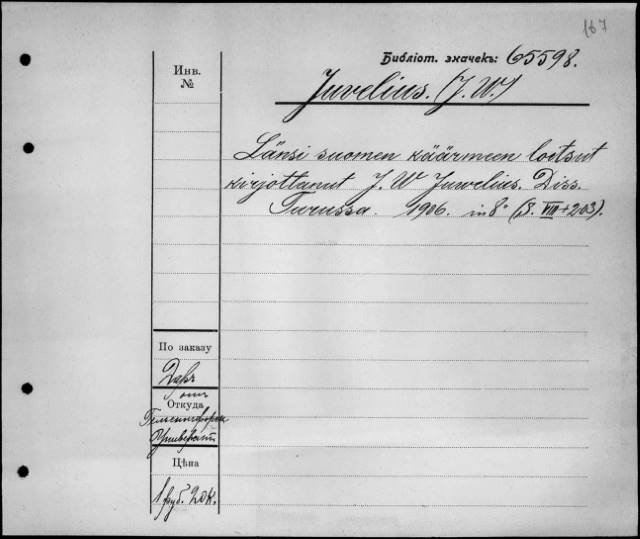 167
Библіот. значекъ: 65598.
Инв.
№
Juvelius. (J. W.)
Länsi suomen käärmeen loitsut
kirjottanut J. W Juvelius. Diss.
Turussa. 1906. in 8° (S. VIII + 203).
По заказу
Даръ
отъ
Откуда
Гельсингфорск
Университ
Цѣна
1 руб. 20к.